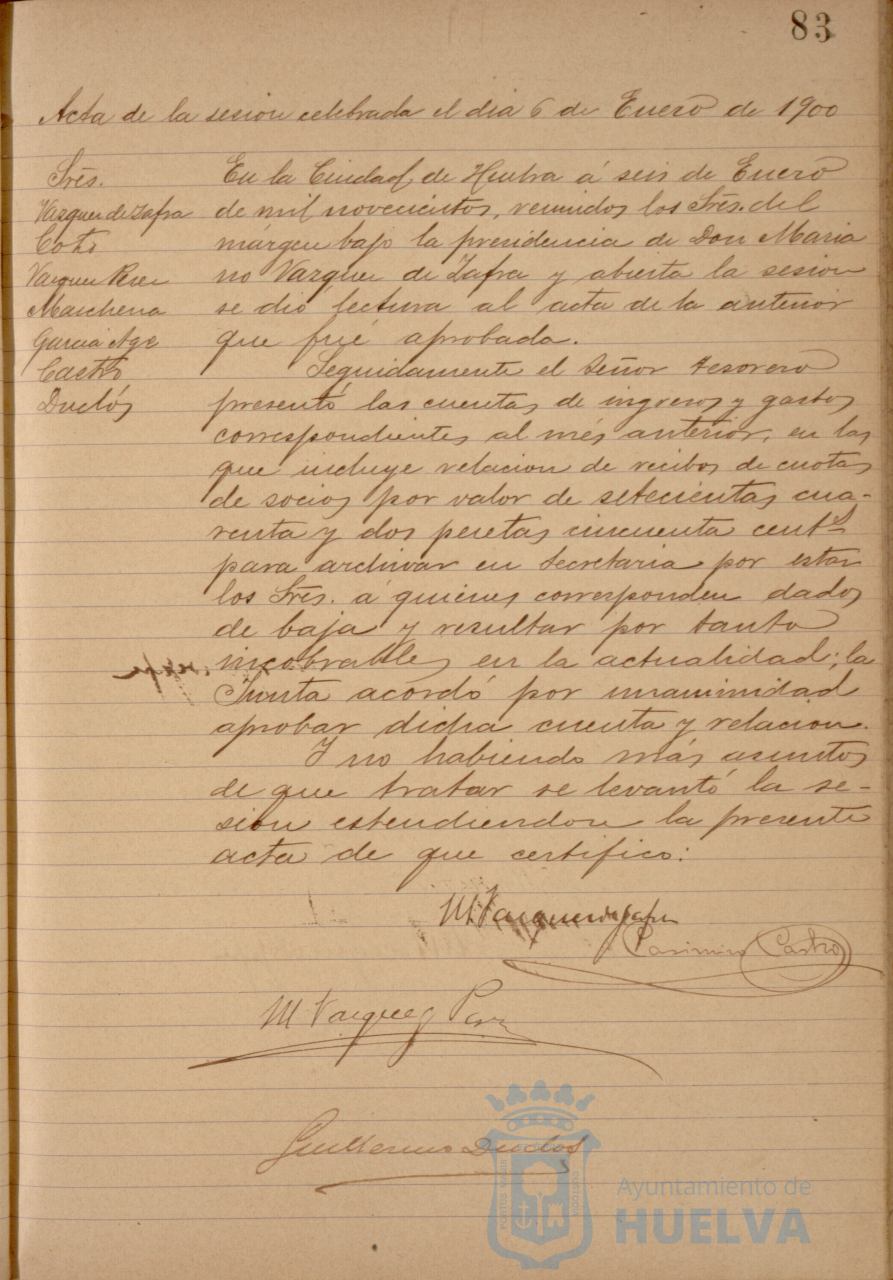 83
Acta de la sesion celebrada el dia 6 de Enero de 1900
Srés.
Vazquez de Zafra
Coto
Vazquez Perez
Marchena
Garcia Age
Castro
Duclós
En la Ciudad de Huelva á seis de Enero
de mil novecientos, reunidos los Srés. del
márgen bajo la presidencia de Don Maria
no Vazquez de Zafra y abierta la sesion
se dió lectura al acta de la anterior
que fué aprobada.
Seguidamente el Señor tesorero
presentó las cuentas de ingresos y gastos
correspondientes al més anterior, en las
que incluye relacion de recibos de cuotas
de socios por valor de setecientas cua-
renta y dos pesetas cincuenta cents
para archivar en Secretaria por estar
los Srés. á quienes corresponden dados
de baja y resultar por tanto
incobrables en la actualidad; la
Junta acordó por unanimidad
aprobar dicha cuenta y relacion.
Y no habiendo más asuntos
de que tratar se levantó la se-
sion estendiendose la presente
acta de que certifico:
M. Vazquez de Zafra
Casimiro Castro
M Vazquez Perez
Guillermo Duclos
Ayuntamiento de
HUELVA